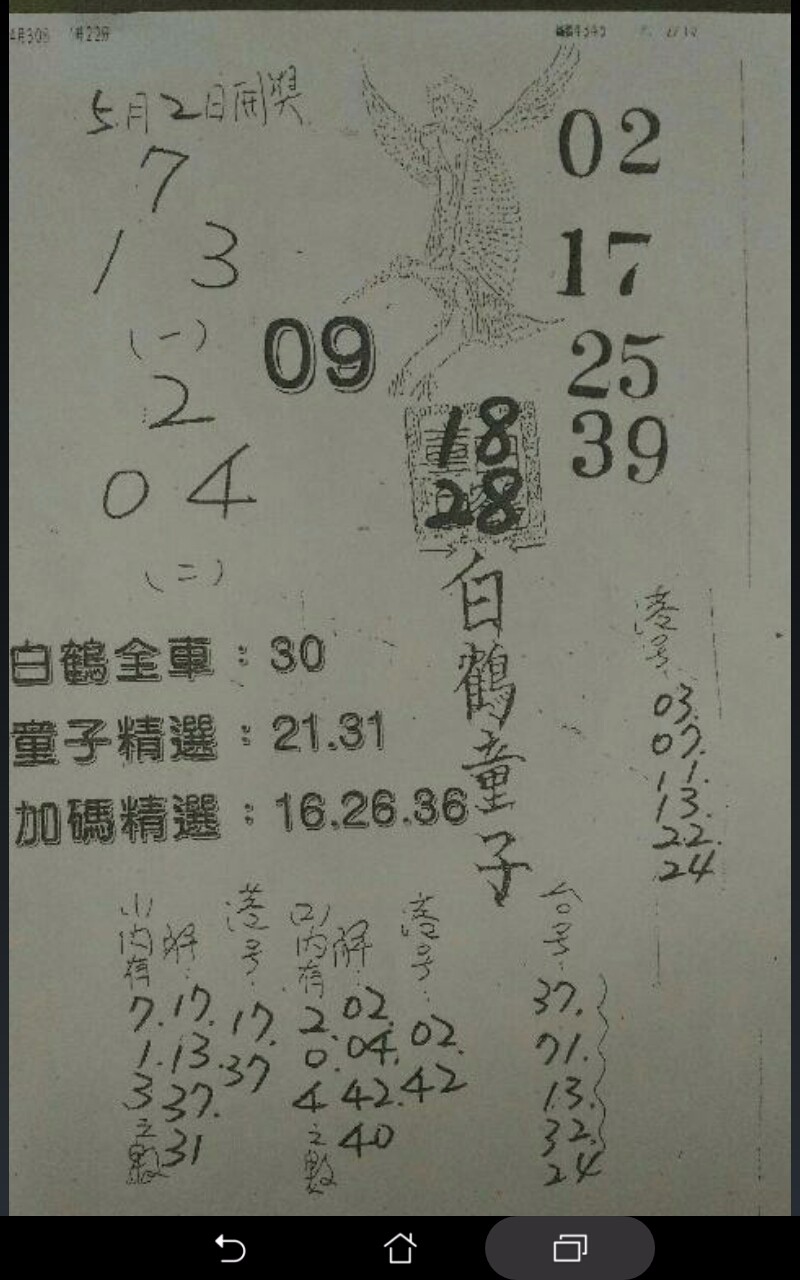 5月2日開獎
7
1 3
(一)
2
0 4
(二)
09
02
17
25
39
18
28
白鶴童子
白鶴全車：30
童子精選：21.31
加碼精選：16.26.36
港号:
03.
07.
11.
13.
22.
24
(1)內有
7.
1.
3
之數
解:
17.
13.
37.
31
港号:
17.
37
(2)內有
2.
0.
4
之數
解:
02.
04.
42.
40
港号:
02.
42
台号:
37.
71.
13.
32.
24